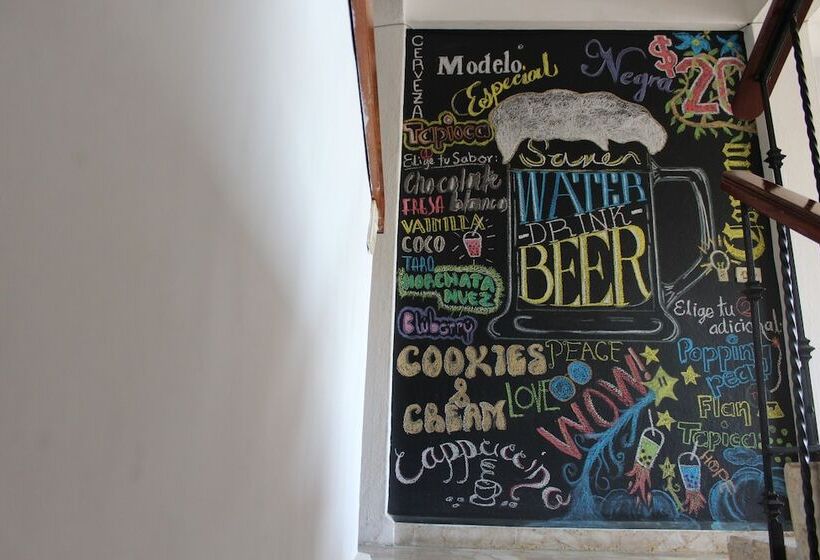 CERVEZA
Modelo
Especial
Negra
$20
Tapioca
Elige tu Sabor:
Chocolate
blanco
FRESA
VAINILLA
COCO
TARO
HORCHATA
NUEZ
Bluberry
COOKIES
&
CREAM
Cappuccino
Save
WATER
-DRINK-
BEER
Elige tu
adicional
Popping
Flan
Tapioca
PEACE
LOVE
WOW!